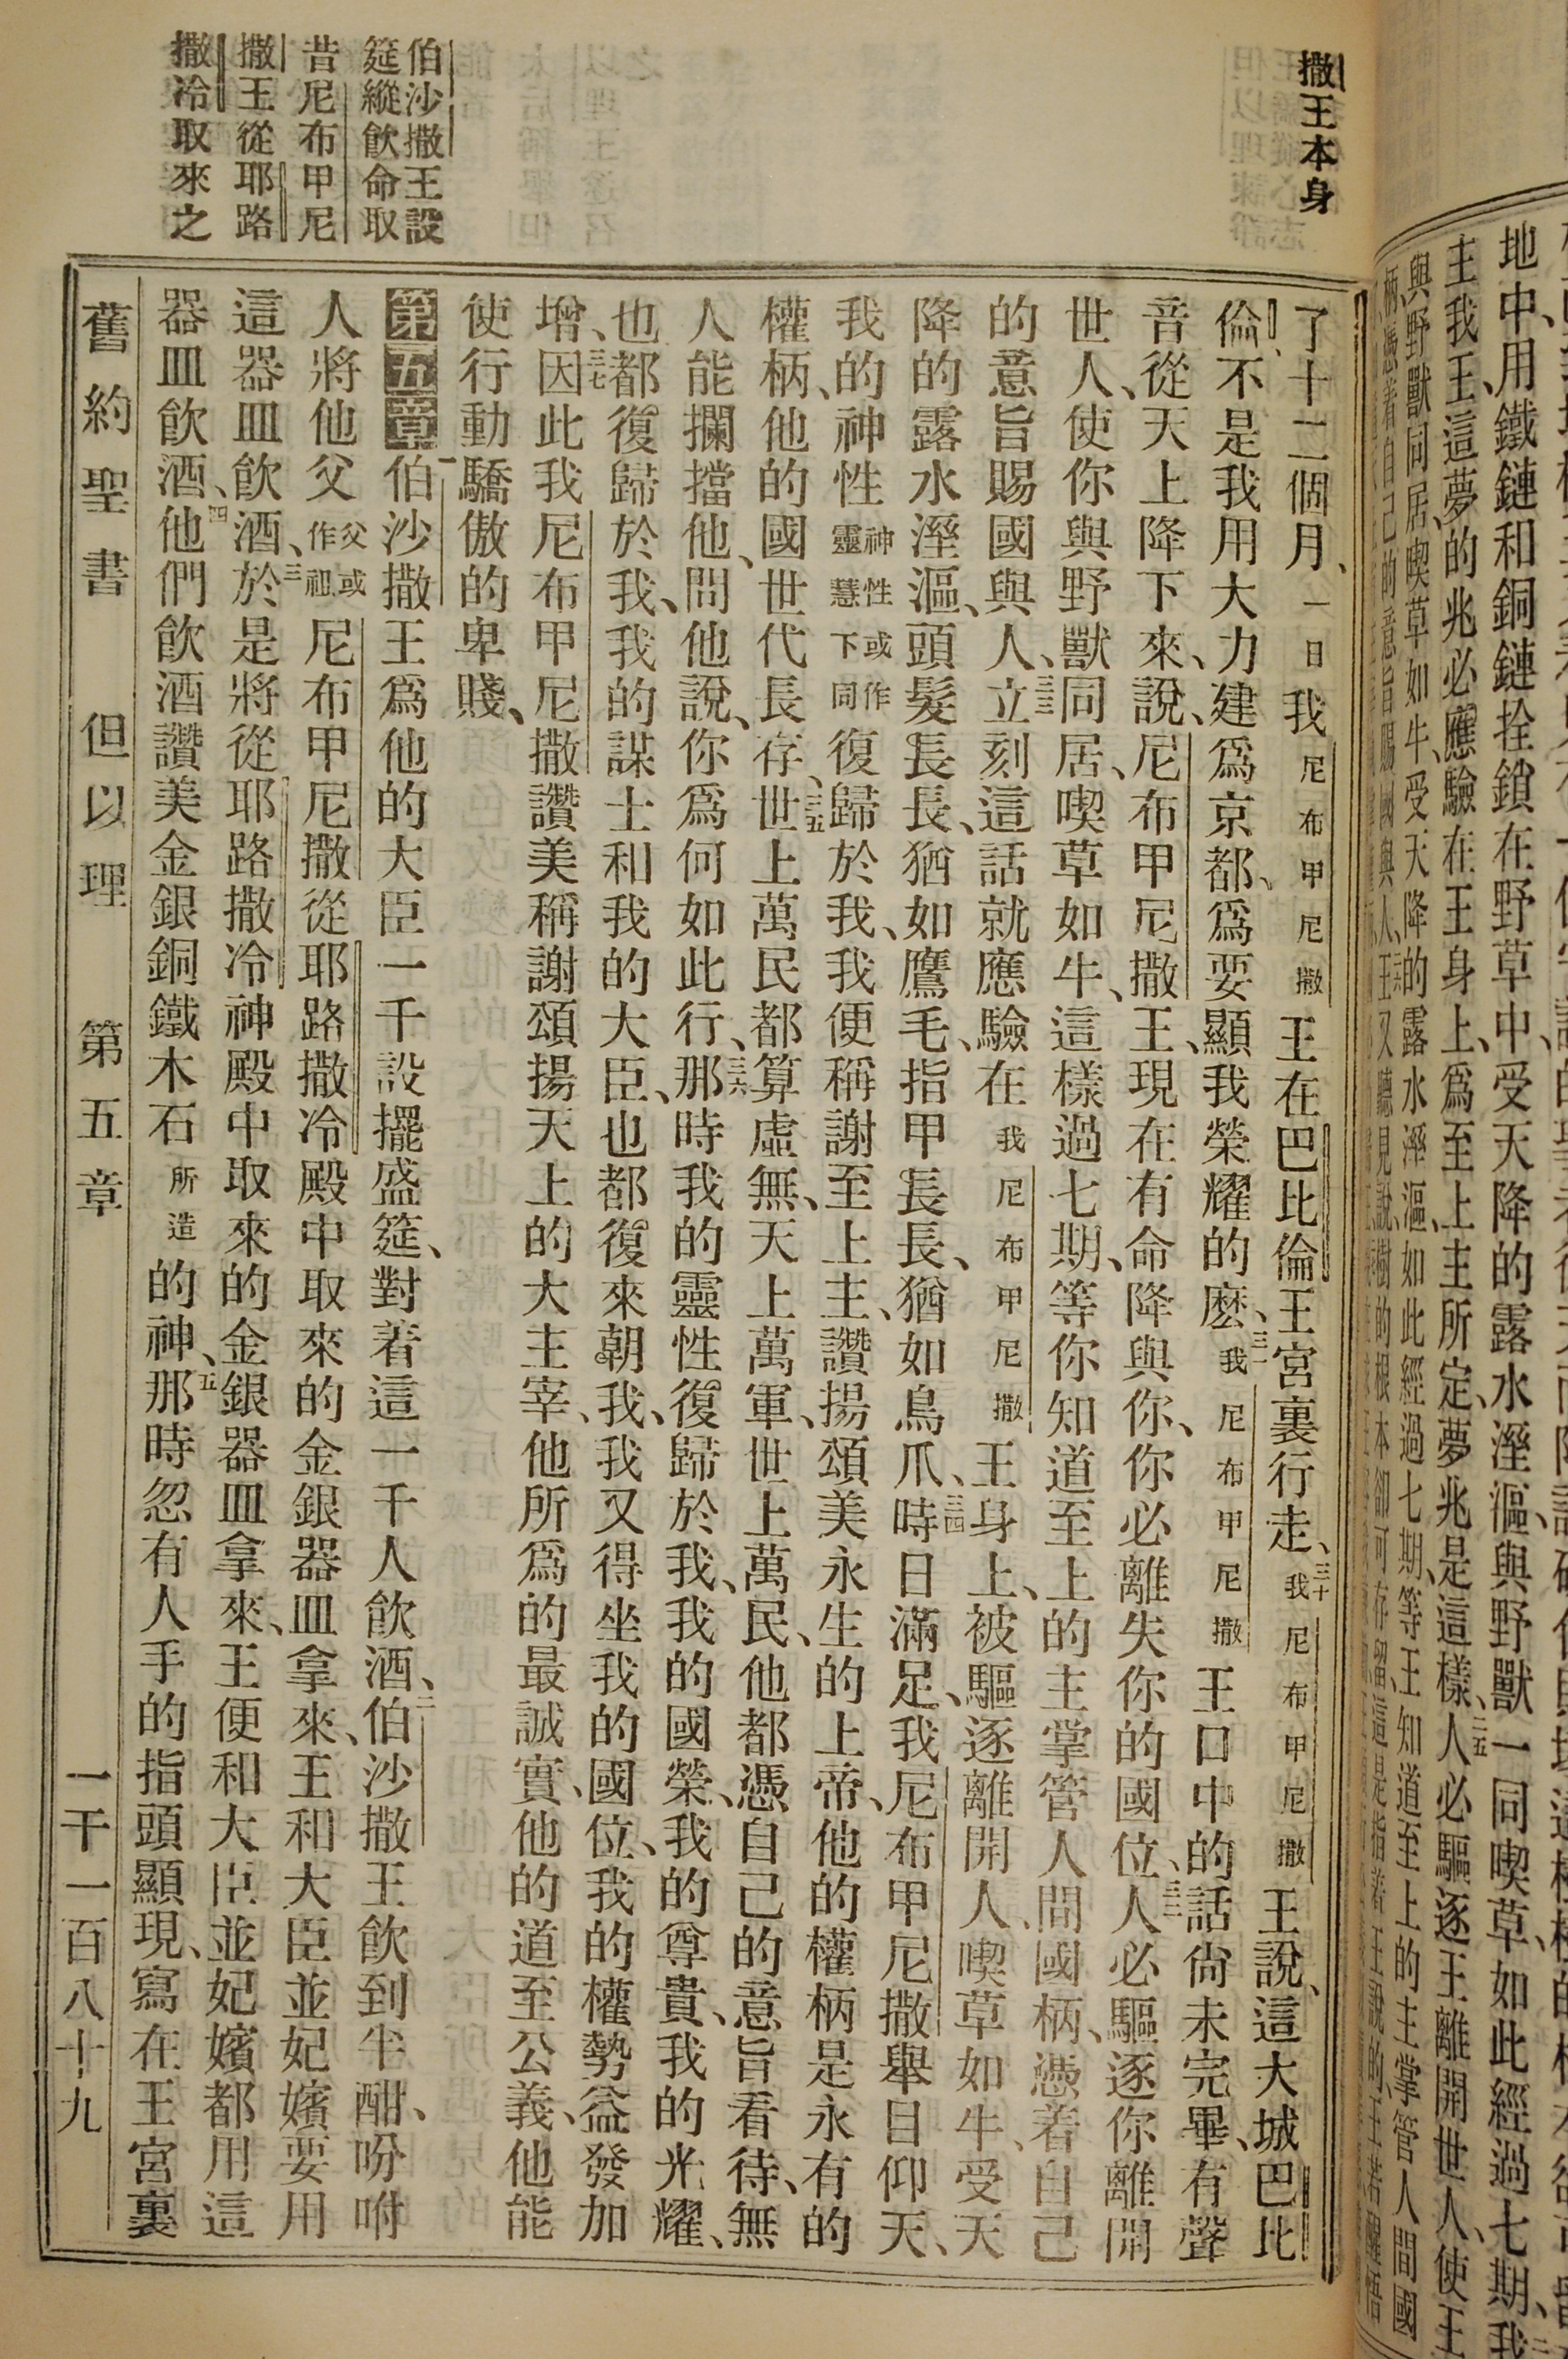 地中、用鐵鏈和銅鏈拴鎖在野草中、受天降的露水溼漚、與野獸一同喫草、如此經過七期、我
主我王、這夢的兆必應驗在王身上、爲至上主所定、夢兆是這樣、二五人必驅逐王離開世人、使王
與野獸同居、喫草如牛、受天降的露水溼漚、如此經過七期、等王知道至上的主掌管人間國
柄、憑着自己的意旨賜國與人、二六王又聽見說、樹的根本卻可存留、這是指着王說的、王若醒悟
撒王本身
了十二個月、一日我尼布甲尼撒王在巴比倫王宮裏行走、三十我尼布甲尼撒王說、這大城巴比
倫、不是我用大力建爲京都、爲要顯我榮耀的麽、三一我尼布甲尼撒王口中的話尙未完畢、有聲
音從天上降下來、說、尼布甲尼撒王、現在有命降與你、你必離失你的國位、三二人必驅逐你離開
世人、使你與野獸同居、喫草如牛、這樣過七期、等你知道至上的主掌管人間國柄、憑着自己
的意旨賜國與人、三三立刻這話就應驗在我尼布甲尼撒王身上、被驅逐離開人、喫草如牛、受天
降的露水溼漚、頭髮長長、猶如鷹毛、指甲長長、猶如鳥爪、三四時日滿足、我尼布甲尼撒舉目仰天、
我的神性神性或作靈慧下同復歸於我、我便稱謝至上主、讚揚頌美永生的上帝、他的權柄是永有的
權柄、他的國世代長存、三五世上萬民都算虛無、天上萬軍、世上萬民、他都憑自己的意旨看待、無
人能攔擋他、問他說、你爲何如此行、三六那時我的靈性復歸於我、我的國榮、我的尊貴、我的光耀、
也都復歸於我、我的謀士和我的大臣、也都復來朝我、我又得坐我的國位、我的權勢益發加
增、三七因此我尼布甲尼撒讚美稱謝頌揚天上的大主宰、他所爲的最誠實、他的道至公義、他能
使行動驕傲的卑賤、
伯沙撒王設
筵縱飲命取
昔尼布甲尼
撒王從耶路
撒冷取來之
第五章 一伯沙撒王爲他的大臣一千設擺盛筵、對着這一千人飲酒、二伯沙撒王飲到半酣、吩咐
人將他父父或作祖尼布甲尼撒從耶路撒冷殿中取來的金銀器皿拿來、王和大臣並妃嬪要用
這器皿飲酒、三於是將從耶路撒冷神殿中取來的金銀器皿拿來、王便和大臣並妃嬪都用這
器皿飲酒、四他們飲酒讚美金銀銅鐵木石所造的神、五那時忽有人手的指頭顯現、寫在王宮裏
舊約聖書 但以理 第五章 一千一百八十九